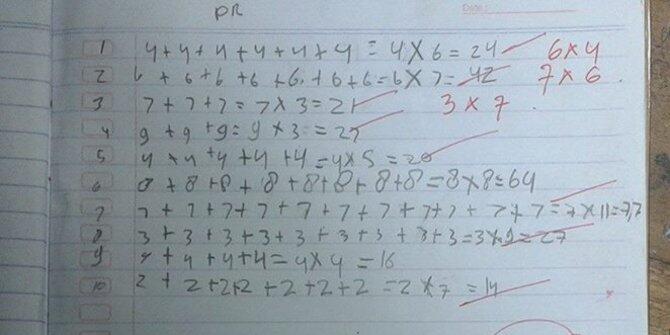 PR
Date:
1 4+4+4+4+4+4 = 4×6=24 6×4
2 6+6+6+6+6+6+6=6×7=42 7×6
3 7+7+7=7×3=21 3×7
4 9+9+9=9×3=27
5 4+4+4+4+4=4×5=20
6 8+8+8+8+8+8+8+8=8×8=64
7 7+7+7+7+7+7+7+7+7+7+7=7×11=77
8 3+3+3+3+3+3+3+3+3=3×9=27
9 4+4+4+4=4×4=16
10 2+2+2+2+2+2+2=2×7=14